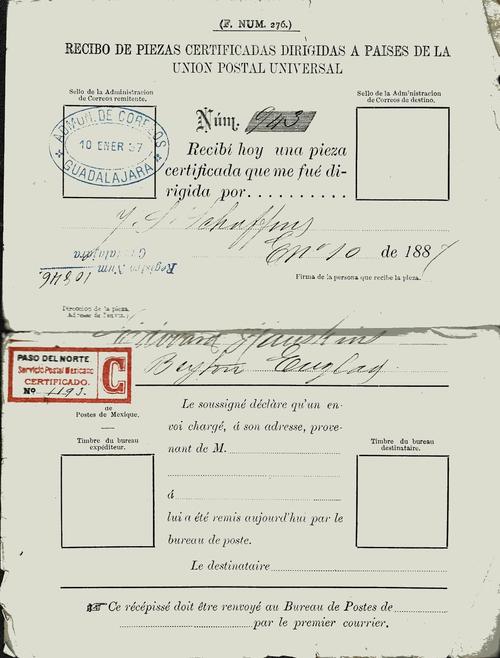 (F. NUM. 276.)
RECIBO DE PIEZAS CERTIFICADAS DIRIGIDAS A PAISES DE LA
UNION POSTAL UNIVERSAL
Sello de la Administracion
de Correos remitente.
Sello de la Adm'nistracion
de Correos de destino.
ADMON. DE CORREOS
10 ENER 87
GUADALAJARA
Núm. 943
Recibí hoy una pieza
certificada que me fué di-
rigida por..........
Eno 10 de 1887
Registro Num
Guadalajara
Firma de la persona que recibe la pieza.
Direccion de la pieza.
England
PASO DEL NORTE.
Servicio Postal Mexicano
CERTIFICADO.
No 1193.
C
de
Postes de Mexique.
Timbre du bureau
expéditeur.
Le soussigné déclare qu'un en-
voi chargé, á son adresse, prove-
nant de M.
á
lui a été remis aujourd'hui par le
bureau de poste.
Timbre du bureau
destinataire.
Le destinataire
☞ Ce récépissé doit être renvoyé au Bureau de Postes de
par le premier courrier.